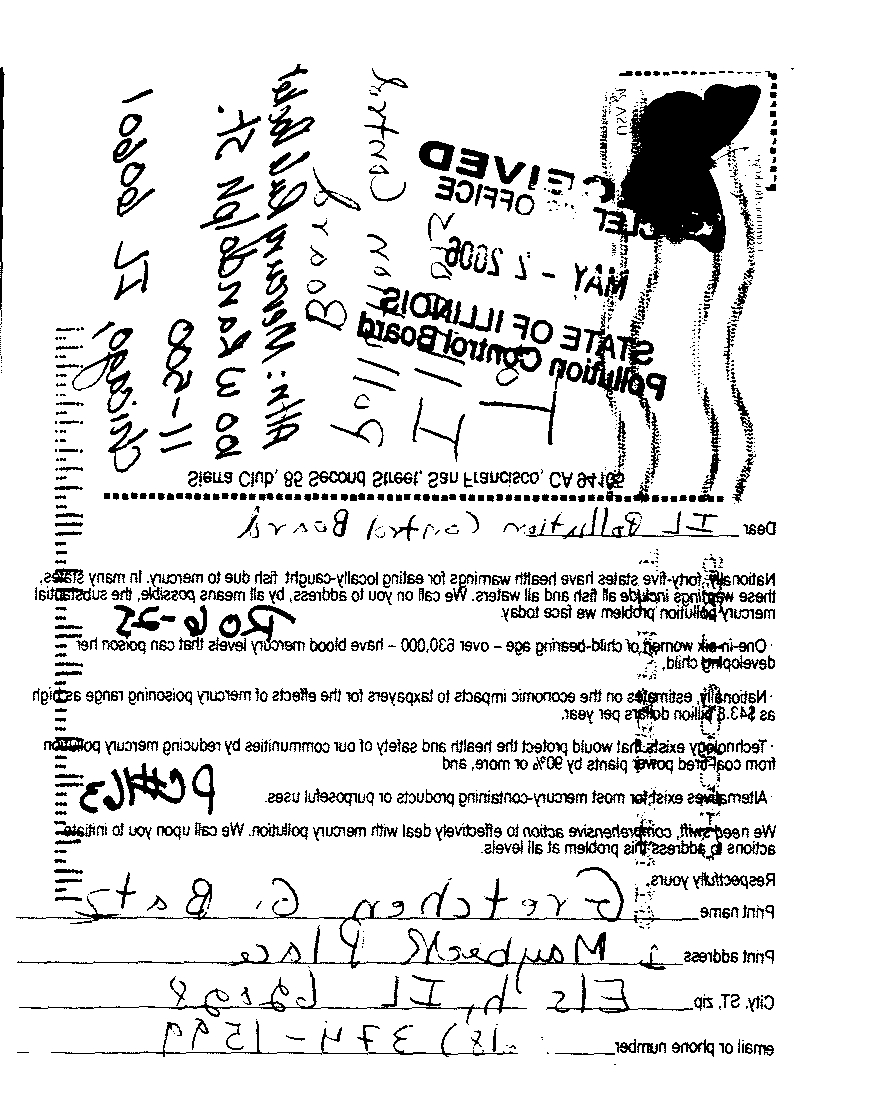 USA 24
RECEIVED
CLERK'S OFFICE
MAY - 2 2006
STATE OF ILLINOIS
Pollution Control Board
To
Illinois
Pollution Control
Board
Attn:
100 W Randolph St.
11-500
Chicago, IL 60601
Sierra Club, 85 Second Street, San Francisco, CA 94105
Dear IL Pollution Control Board
Nationally, forty-five states have health warnings for eating locally-caught fish due to mercury. In many states,
these warnings include all fish and all waters. We call on you to address, by all means possible, the substantial
mercury pollution problem we face today.
R06-25
· One-in-six women of child-bearing age – over 630,000 – have blood mercury levels that can poison her
developing child,
· Nationally, estimates on the economic impacts to taxpayers for the effects of mercury poisoning range as high
as $43.8 billion dollars per year.
· Technology exists that would protect the health and safety of our communities by reducing mercury pollution
from coal-fired power plants by 90% or more, and
PC#163
· Alternatives exist for most mercury-containing products or purposeful uses.
We need swift, comprehensive action to effectively deal with mercury pollution. We call upon you to initiate
actions to address this problem at all levels.
Respectfully yours,
Print name Gretchen G. Batz
Print address 1 Maybeck Place
City, ST, zip Elsah, IL 62028
email or phone number 618) 374-1599